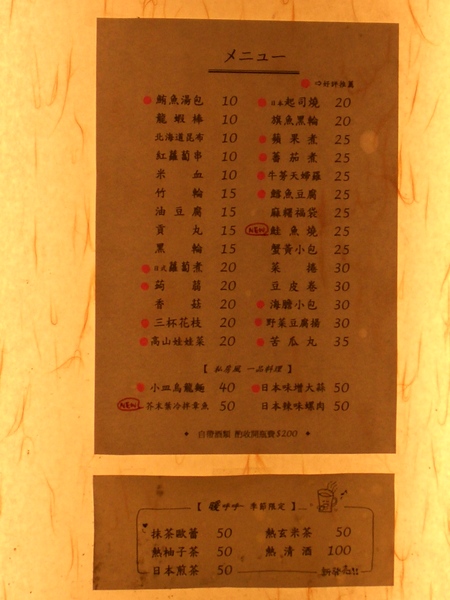 メニュー
⇨好評推薦
鮪魚湯包 10
龍蝦棒 10
北海道昆布 10
紅蘿蔔串 10
米血 10
竹輪 15
油豆腐 15
貢丸 15
黑輪 15
日式蘿蔔煮 20
蒟蒻 20
香菇 20
三杯花枝 20
高山娃娃菜 20
日式起司燒 20
旗魚黑輪 20
蘋果煮 25
蕃茄煮 25
牛蒡天婦羅 25
鱈魚豆腐 25
麻糬福袋 25
鮭魚燒 25
蟹黃小包 25
菜捲 30
豆皮卷 30
海膽小包 30
野菜豆腐揚 30
苦瓜丸 35
【 私房風 一品料理 】
小皿烏龍麵 40
芥末醬冷拌章魚 50
日本味噌大蒜 50
日本辣味螺肉 50
自帶酒類 酌收開瓶費$200
【 暖ササ 季節限定 】
抹茶歐蕾 50
熱柚子茶 50
日本煎茶 50
熱玄米茶 50
熱清酒 100
新發売!!